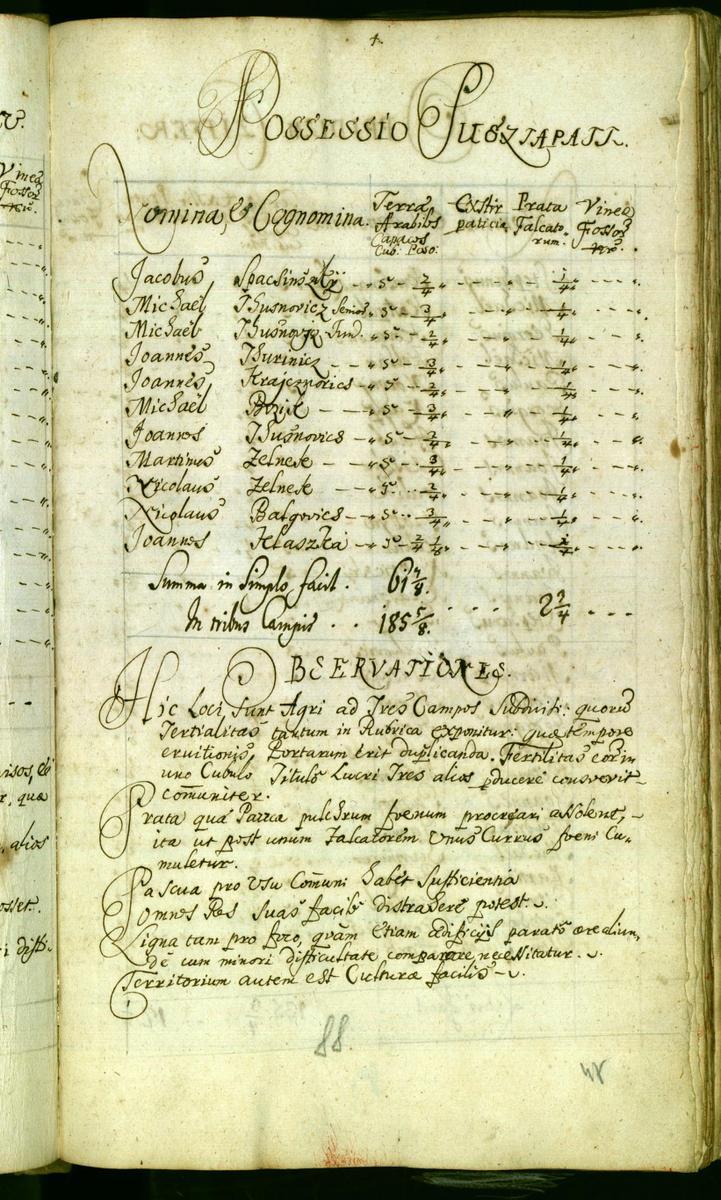 4.
Possessio Pusztapati.
Nomina, & Cognomina. Terrae Arabiles Capaces Cub: Poso: Exstirpaticia Prata Falcatorum. Vinea Fossor
Jacobus 5 2/4 1/4
Michael Thusnovicz Senior 5 3/4 1/4
Michael 5 2/4 1/4
Joannes Thurinicz 5 3/4 1/4
Joannes Krajcznovics 5 2/4 1/4
Michael 5 3/4 1/4
Joannes Thusnovics 5 2/4 1/4
Martinus Zelnek 5 3/4 1/4
Nicolaus Zelnek 5 2/4 1/4
Nicolaus Balgovics 5 3/4 1/4
Joannes Hlaszka
Summa in Simplo facit. 61 7/8.
In tribus Campis . . 185 5/8. 2 3/4
Observationes.
Hic Loci sunt Agri ad Tres Campos Subdivisi: quorum
Tertialitas tantum in Rubrica exponitur: quae tempore
eruitionis Portarum erit duplicanda. Fertilitas eorum
uno Cubulo Titulo Lucri Tres alios pducere consvevit
comuniter.
Prata quae Parca pulchrum foenum procreari assolent,
ita ut post unum Falcatorem Unus Currus foeni Cu-
muletur.
Pascua pro Usu Comuni habet Sufficientia
Omnes Res suas facile distrahere potest.
Ligna tam pro foco, quam etiam aedificijs parato aere aliun-
de cum minori difficultate comparare necessitatur.
Territorium autem est Culturae facilis
88